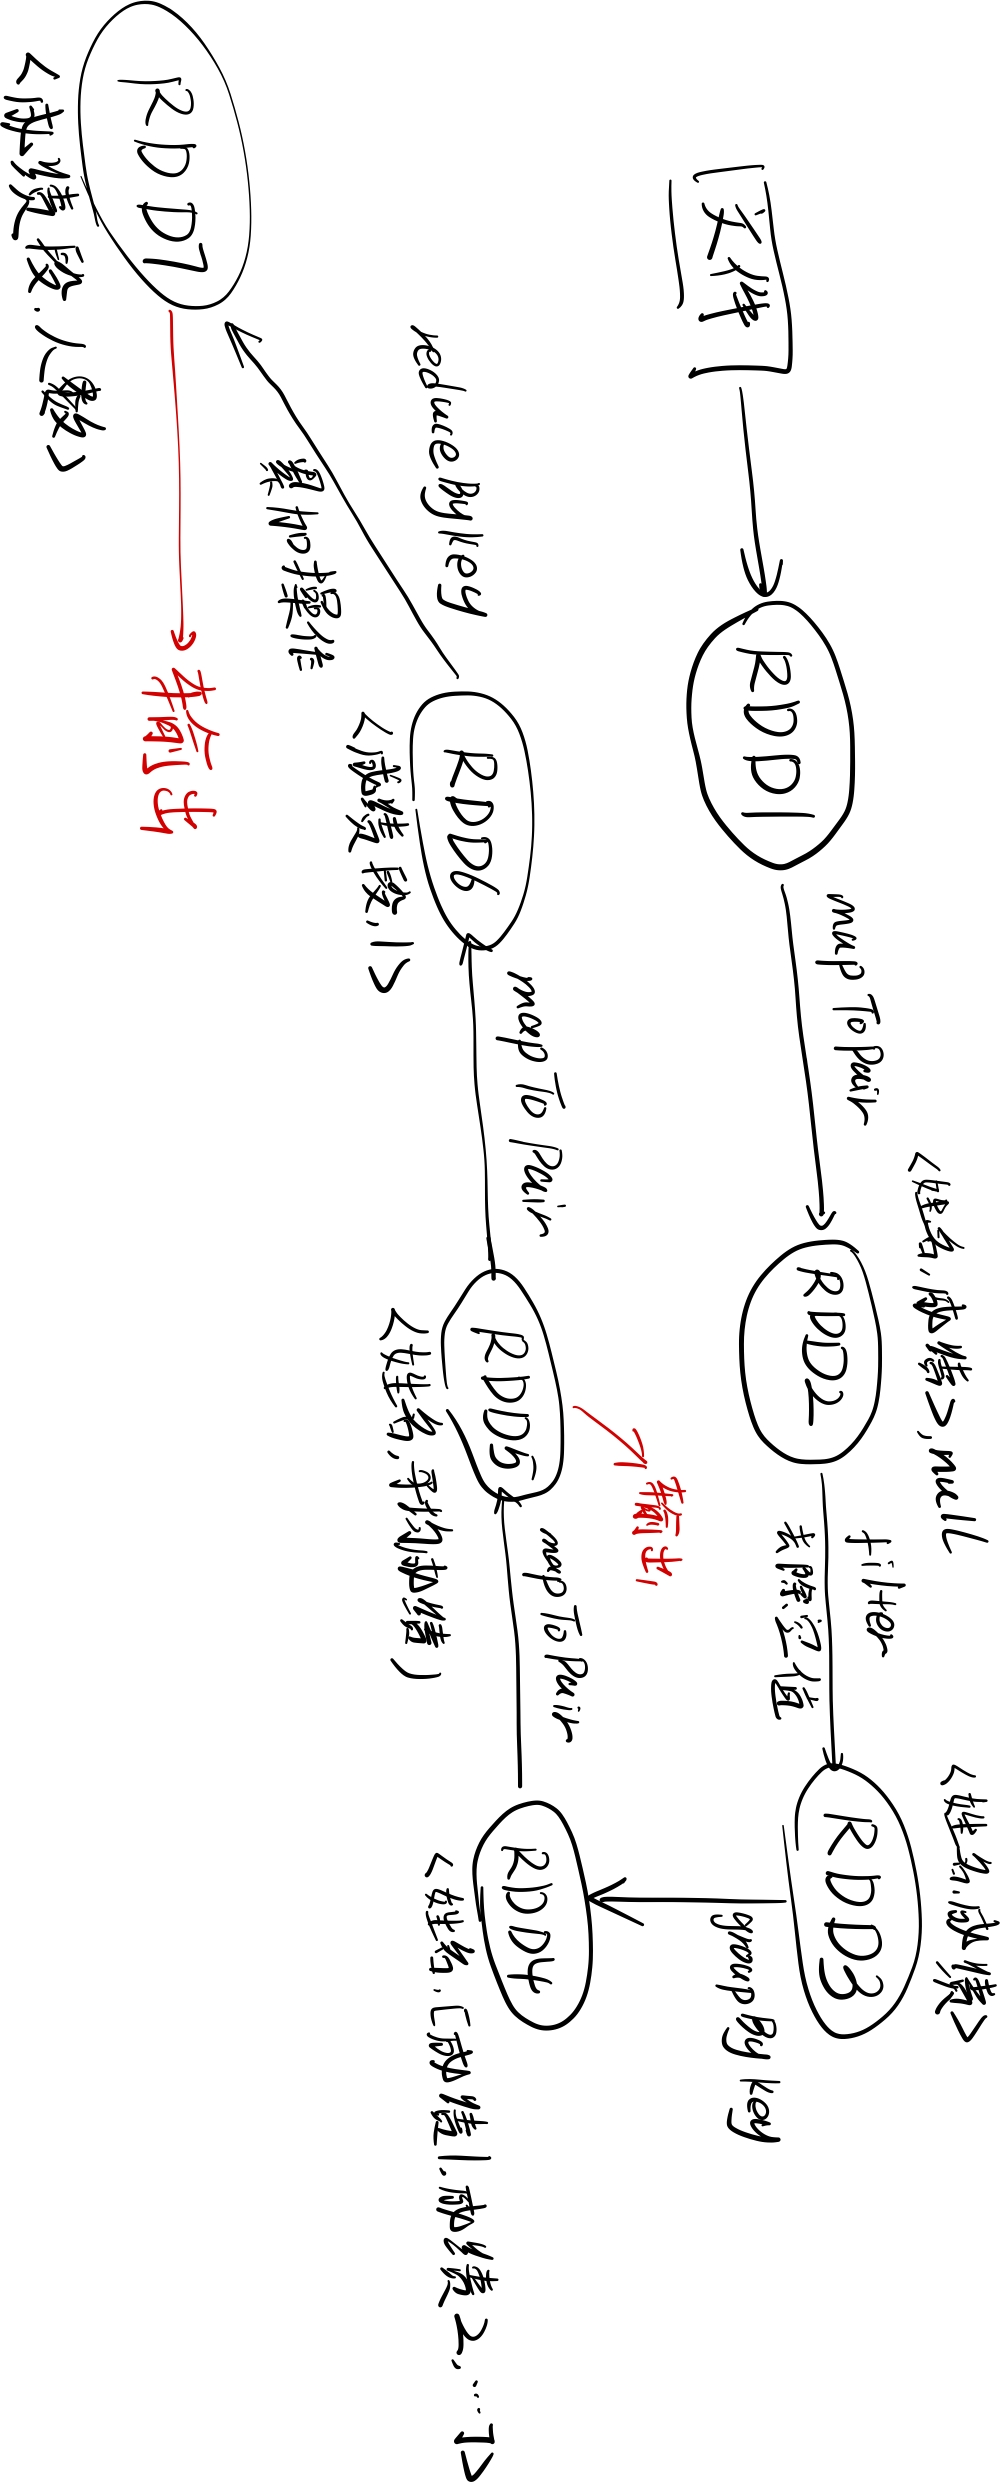 文件
RDD1
mapToPair
RDD2
<姓名,成绩>,null
filter
去除空值
RDD3
<姓名,成绩>
groupByKey
RDD4
<姓名,[成绩1,成绩2,...]>
mapToPair
RDD5
<姓名,平均成绩)
输出
mapToPair
RDD6
<成绩段,1>
reduceByKey
累加操作
RDD7
<成绩段,人数>
输出